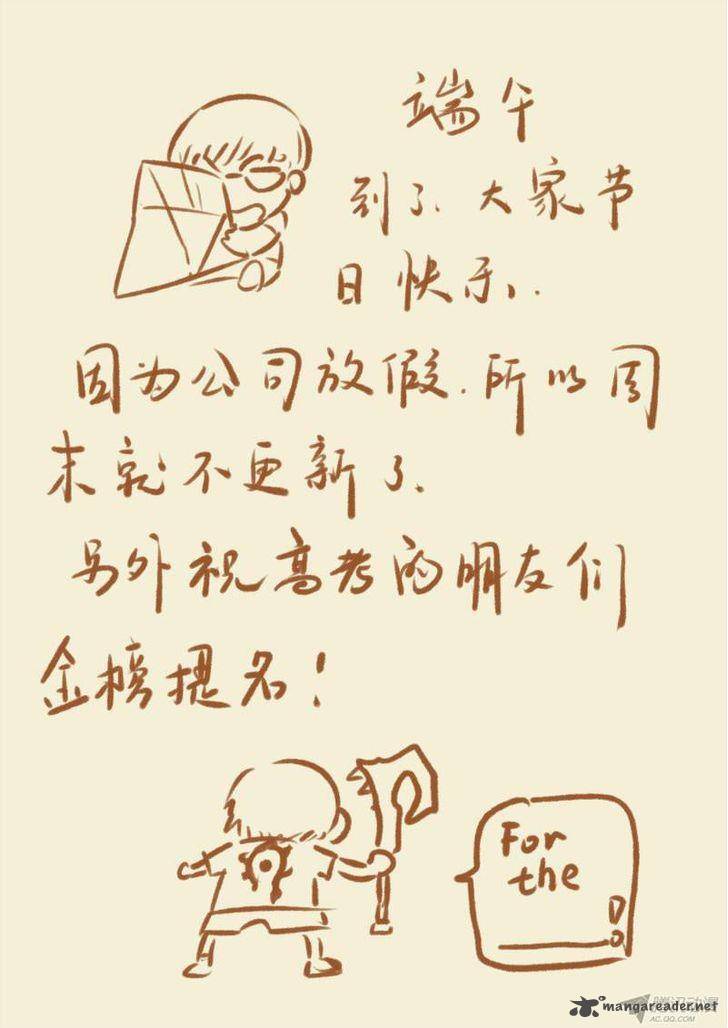 端午
到了、大家节
日快乐、.
因为公司放假.所以周
末就不更新了、
另外祝高考的朋友们
金榜提名！
For
the
!
腾讯动漫
AC.QQ.COM
mangareader.net